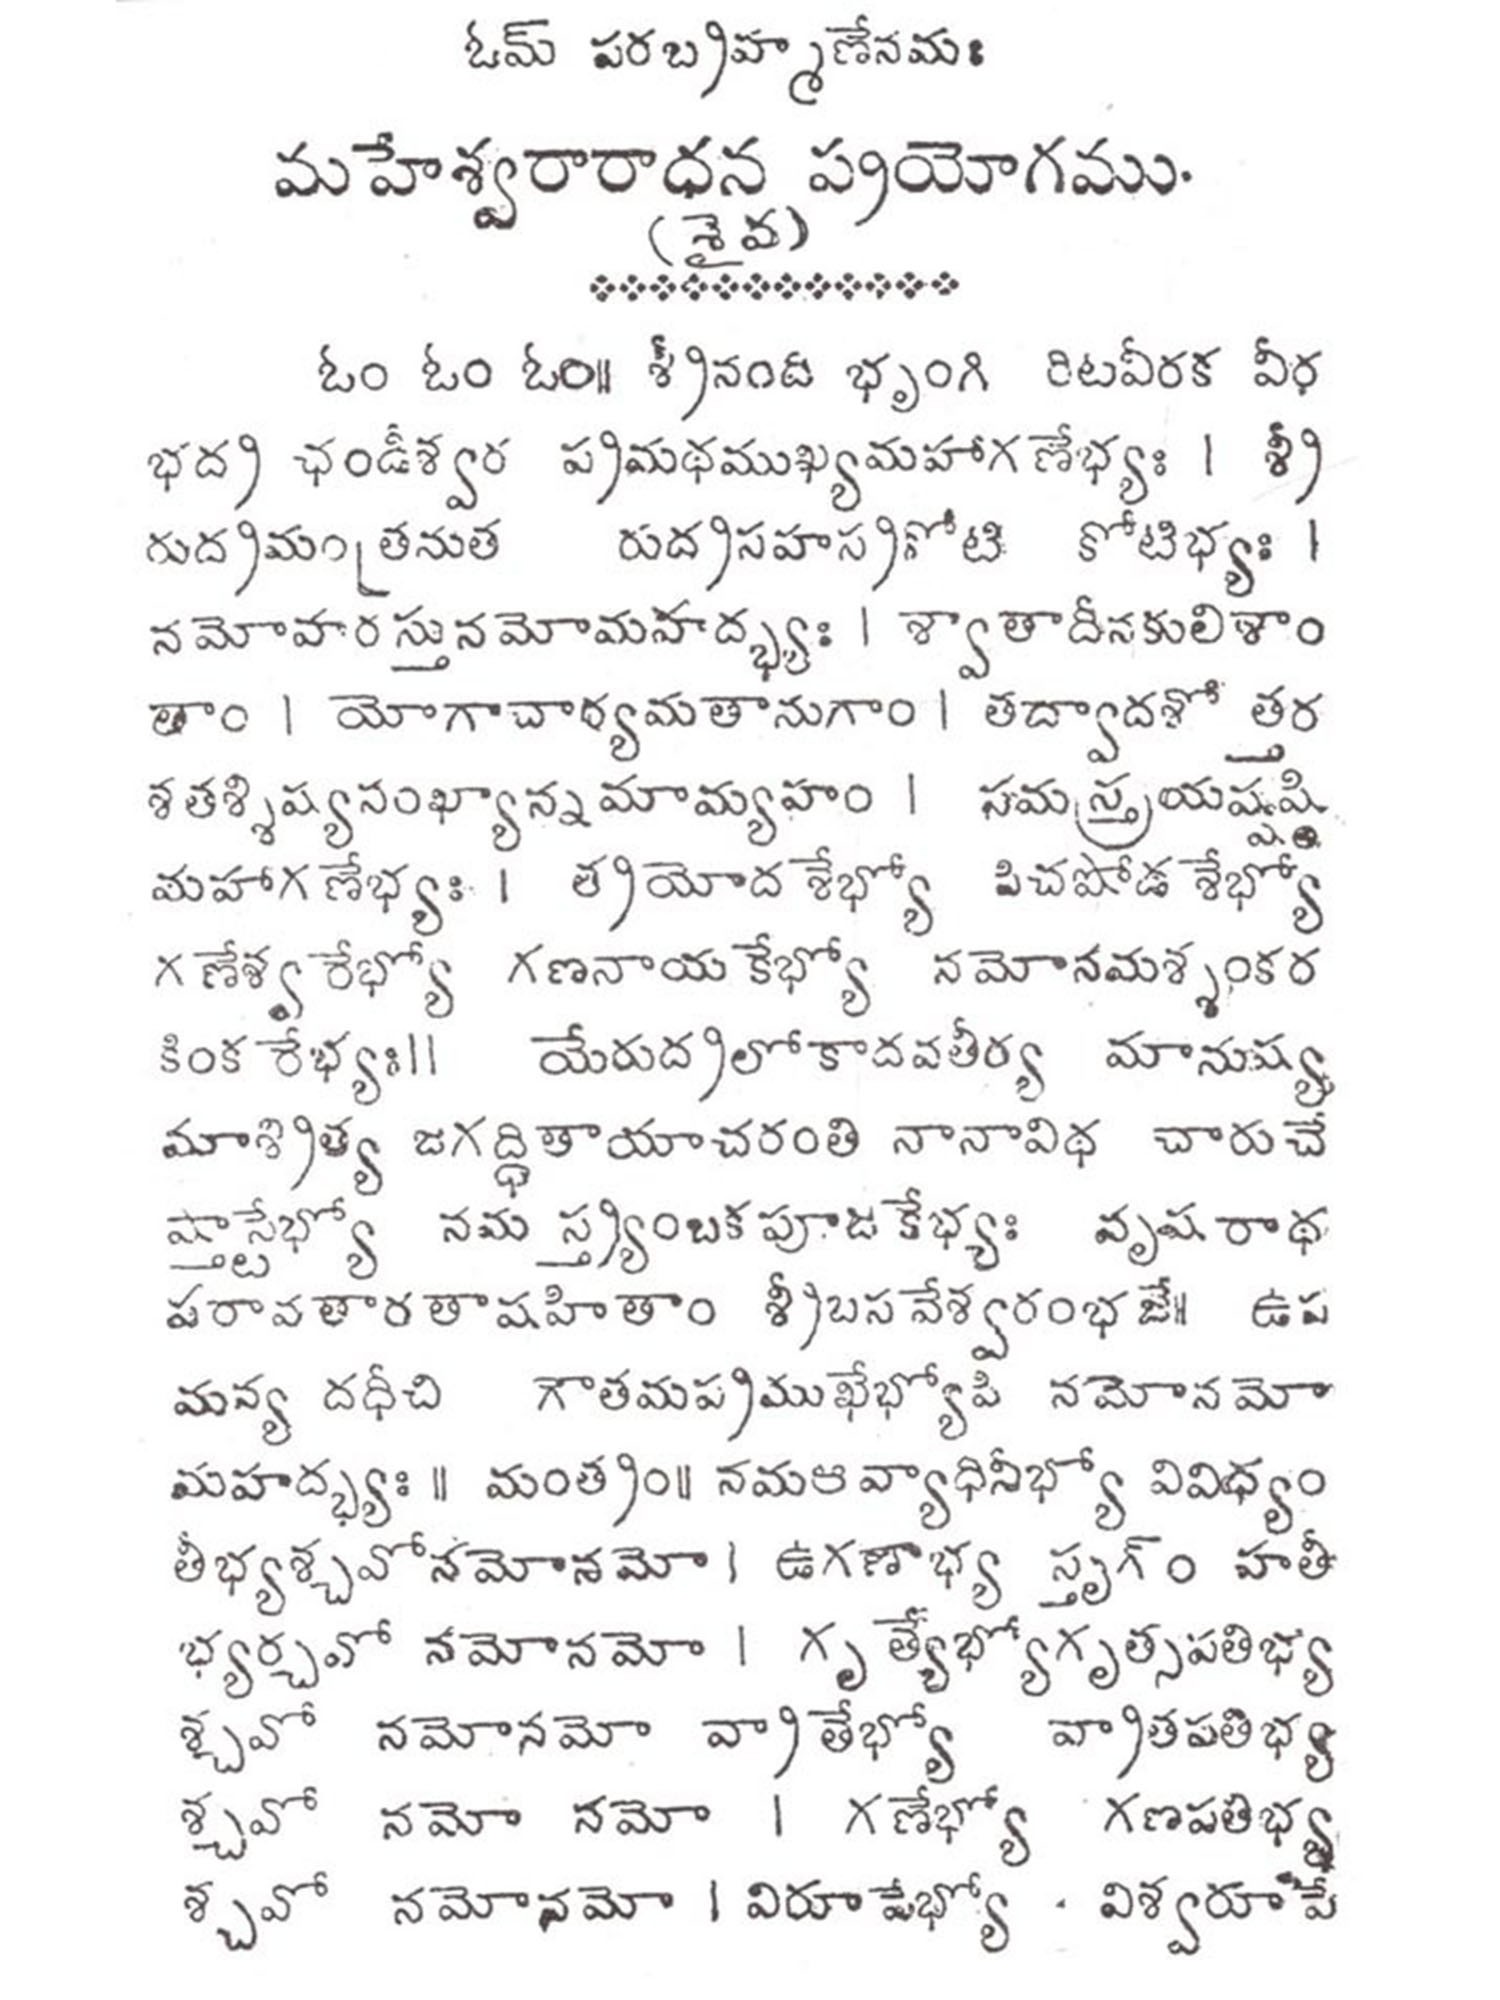 ఓమ్ పరబ్రహ్మణేనమః
మహేశ్వరారాధన ప్రయోగము.
(శైవ)
ఓం ఓం ఓం॥ శ్రీనంది భృంగి రిటవీరక వీర
భద్ర ఛండీశ్వర ప్రమథముఖ్యమహాగణేభ్యః । శ్రీ
రుద్రమంత్రనుత రుద్రసహస్రకోటి కోటిభ్యః ।
నమోవారస్తునమోమహద్భ్యః । శ్వాతాదీనకులిశాం
తాం । యోగాచార్యమతానుగాం । తద్వాదశోత్తర
శతశ్శిష్యసంఖ్యాన్నమామ్యహం । సమస్త్రయష్షష్టి
మహాగణేభ్యః । త్రయోదశేభ్యో పిచషోడశేభ్యో
గణేశ్వరేభ్యో గణనాయకేభ్యో నమోనమశ్శంకర
కింకరేభ్యః॥ యేరుద్రలోకాదవతీర్య మానుష్య
మాశ్రిత్య జగద్ధితాయాచరంతి నానావిధ చారుచే
ష్టాస్తేభ్యో నమస్త్ర్యింబకపూజకేభ్యః వృషరాథ
పరావతారతాషహితాం శ్రీబసవేశ్వరంభజే॥ ఉప
మన్యు దధీచి గౌతమప్రముఖేభ్యోపి నమోనమో
మహద్భ్యః ॥ మంత్రం॥ నమఆవ్యాధినీభ్యో వివిధ్యం
తీభ్యశ్చవోనమోనమో । ఉగణాభ్య స్తృగ్ం హతీ
భ్యర్చవో నమోనమో । గృత్యేభ్యోగృత్సపతిభ్య
శ్చవో నమోనమో వ్రాతేభ్యో వ్రాతపతిభ్య
శ్చవో నమో నమో । గణేభ్యో గణపతిభ్య
శ్చవో నమోనమో । విరూపేభ్యో విశ్వరూపే